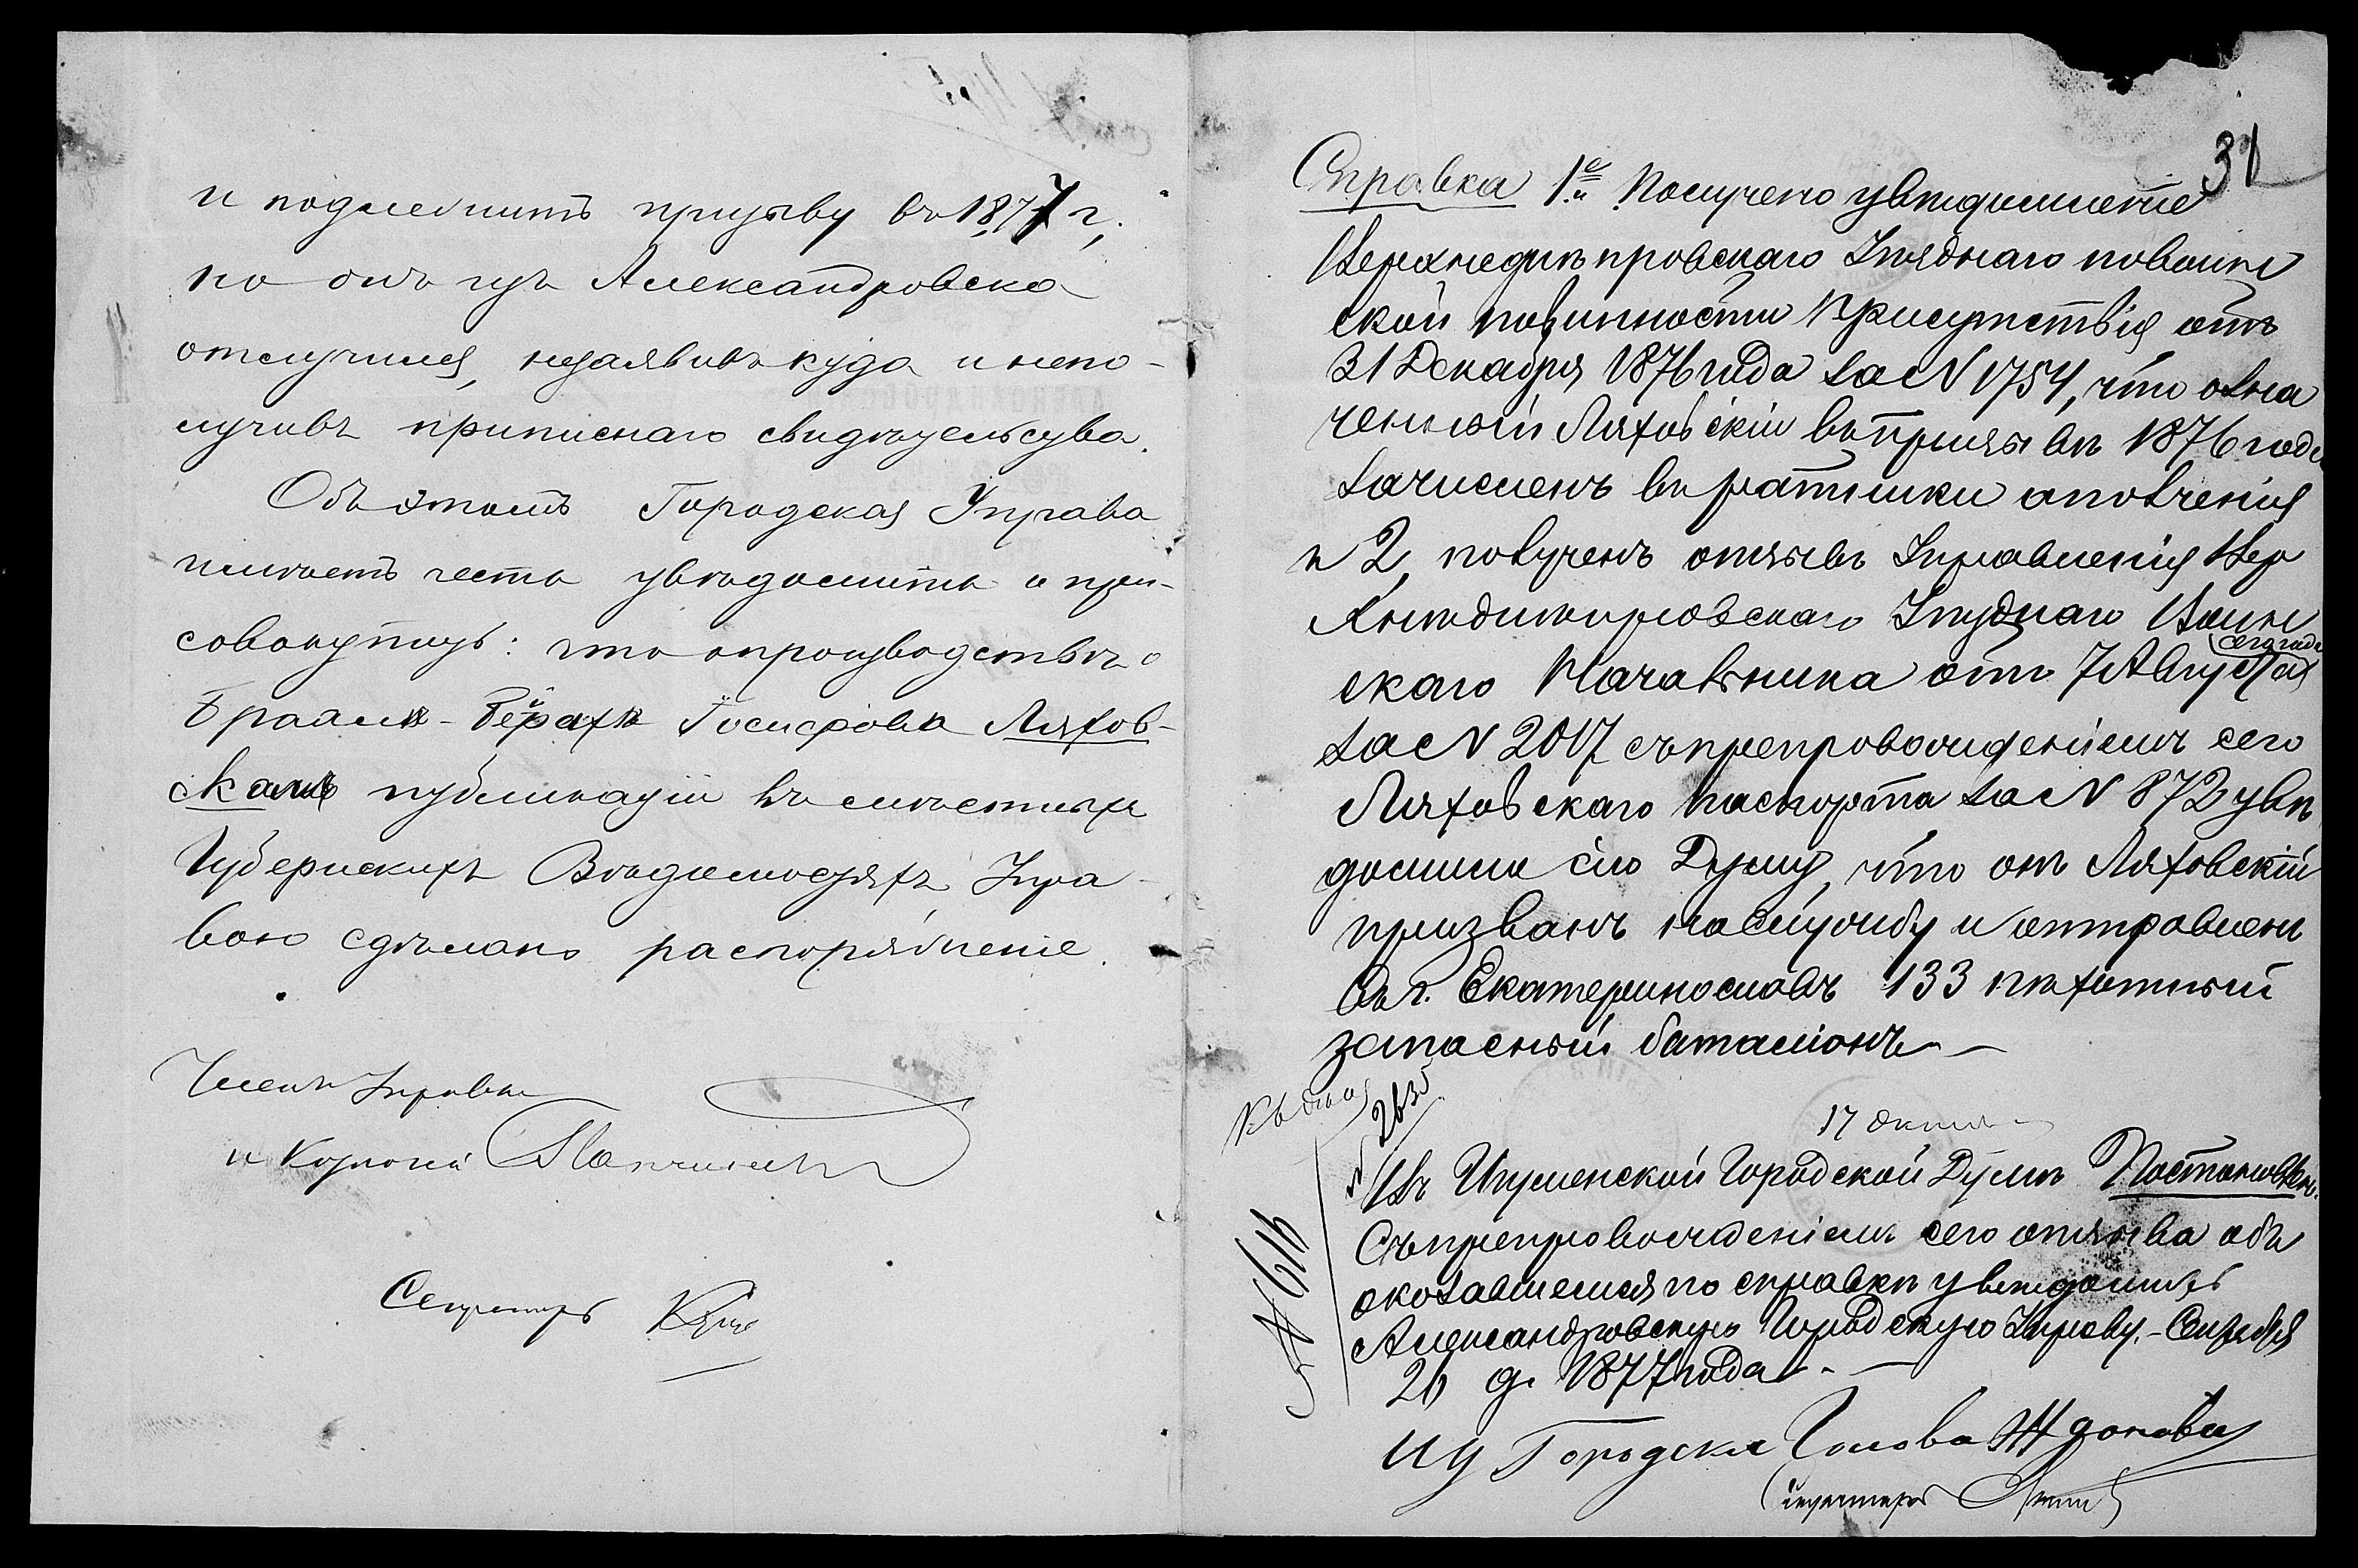 и подлежитъ призыву въ 1877 г.,
но онъ изъ Александровска
отлучился, незаявивъ куда и непо-
лучивъ приписнаго свидѣтельства.
Объ этомъ Городская Управа
имѣетъ честь увѣдомить и при-
совокупить: что о производствѣ о
Іосифова Ляхов-
скомъ публикаціи въ мѣстныхъ
Губернскихъ Вѣдомостяхъ, Упра-
вою сдѣлано распоряженіе.
Членъ Управы
Секретарь
31
Справка 1е и Получено увѣдомленіе
Верхнеднѣпровскаго Уѣзднаго повоин
ской повинности Присутствія отъ
31 Декабря 1876 года за N 1754, что озна
ченный Ляховскій въ призывъ 1876 года
зачисленъ въ ратники ополченія
и 2, полученъ отзывъ Управленія Вер
хнеднѣпровскаго Уѣзднаго Воин
сего года
скаго Начальника отъ 7 Августа
за N 2017 съ препровожденіемъ сего
Ляховскаго паспорта за N 872 увѣ
домило сію Думу, что онъ Ляховскій
призванъ на службу и отправленъ
въ г. Екатеринославъ 133 пѣхотный
запасный баталіонъ
Къ дѣлу
17 Октяб
Въ Игуменской Городской Думѣ Постановлен.
Съ препровожденіемъ сего отзыва объ
оказавшемся по справкѣ увѣдомить
Александровскую Городскую Управу. - Сентября
26 д. 1877 года. -
N 616
ИД Городск Голова Ждановичъ
Секретарь